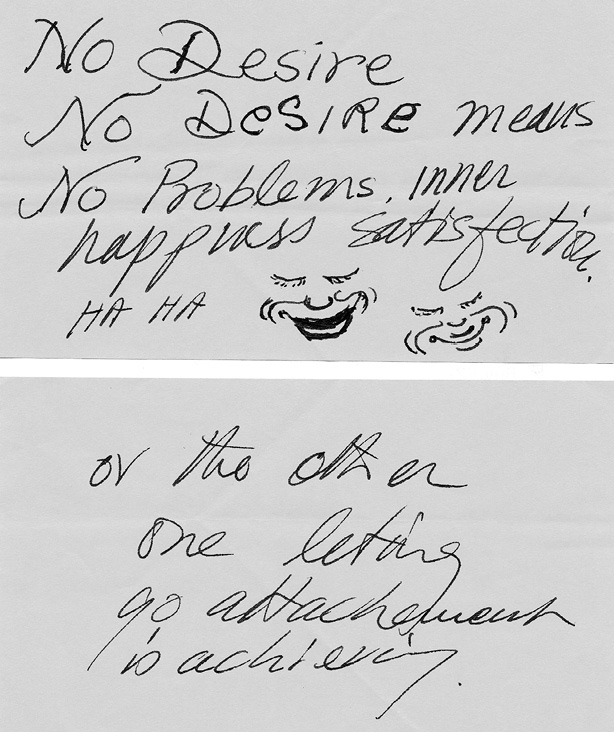 No Desire
No DeSIRe means
No Problems, inner
happness satisfection.
HA HA
or the other
one leting
go attachement
is achieving.